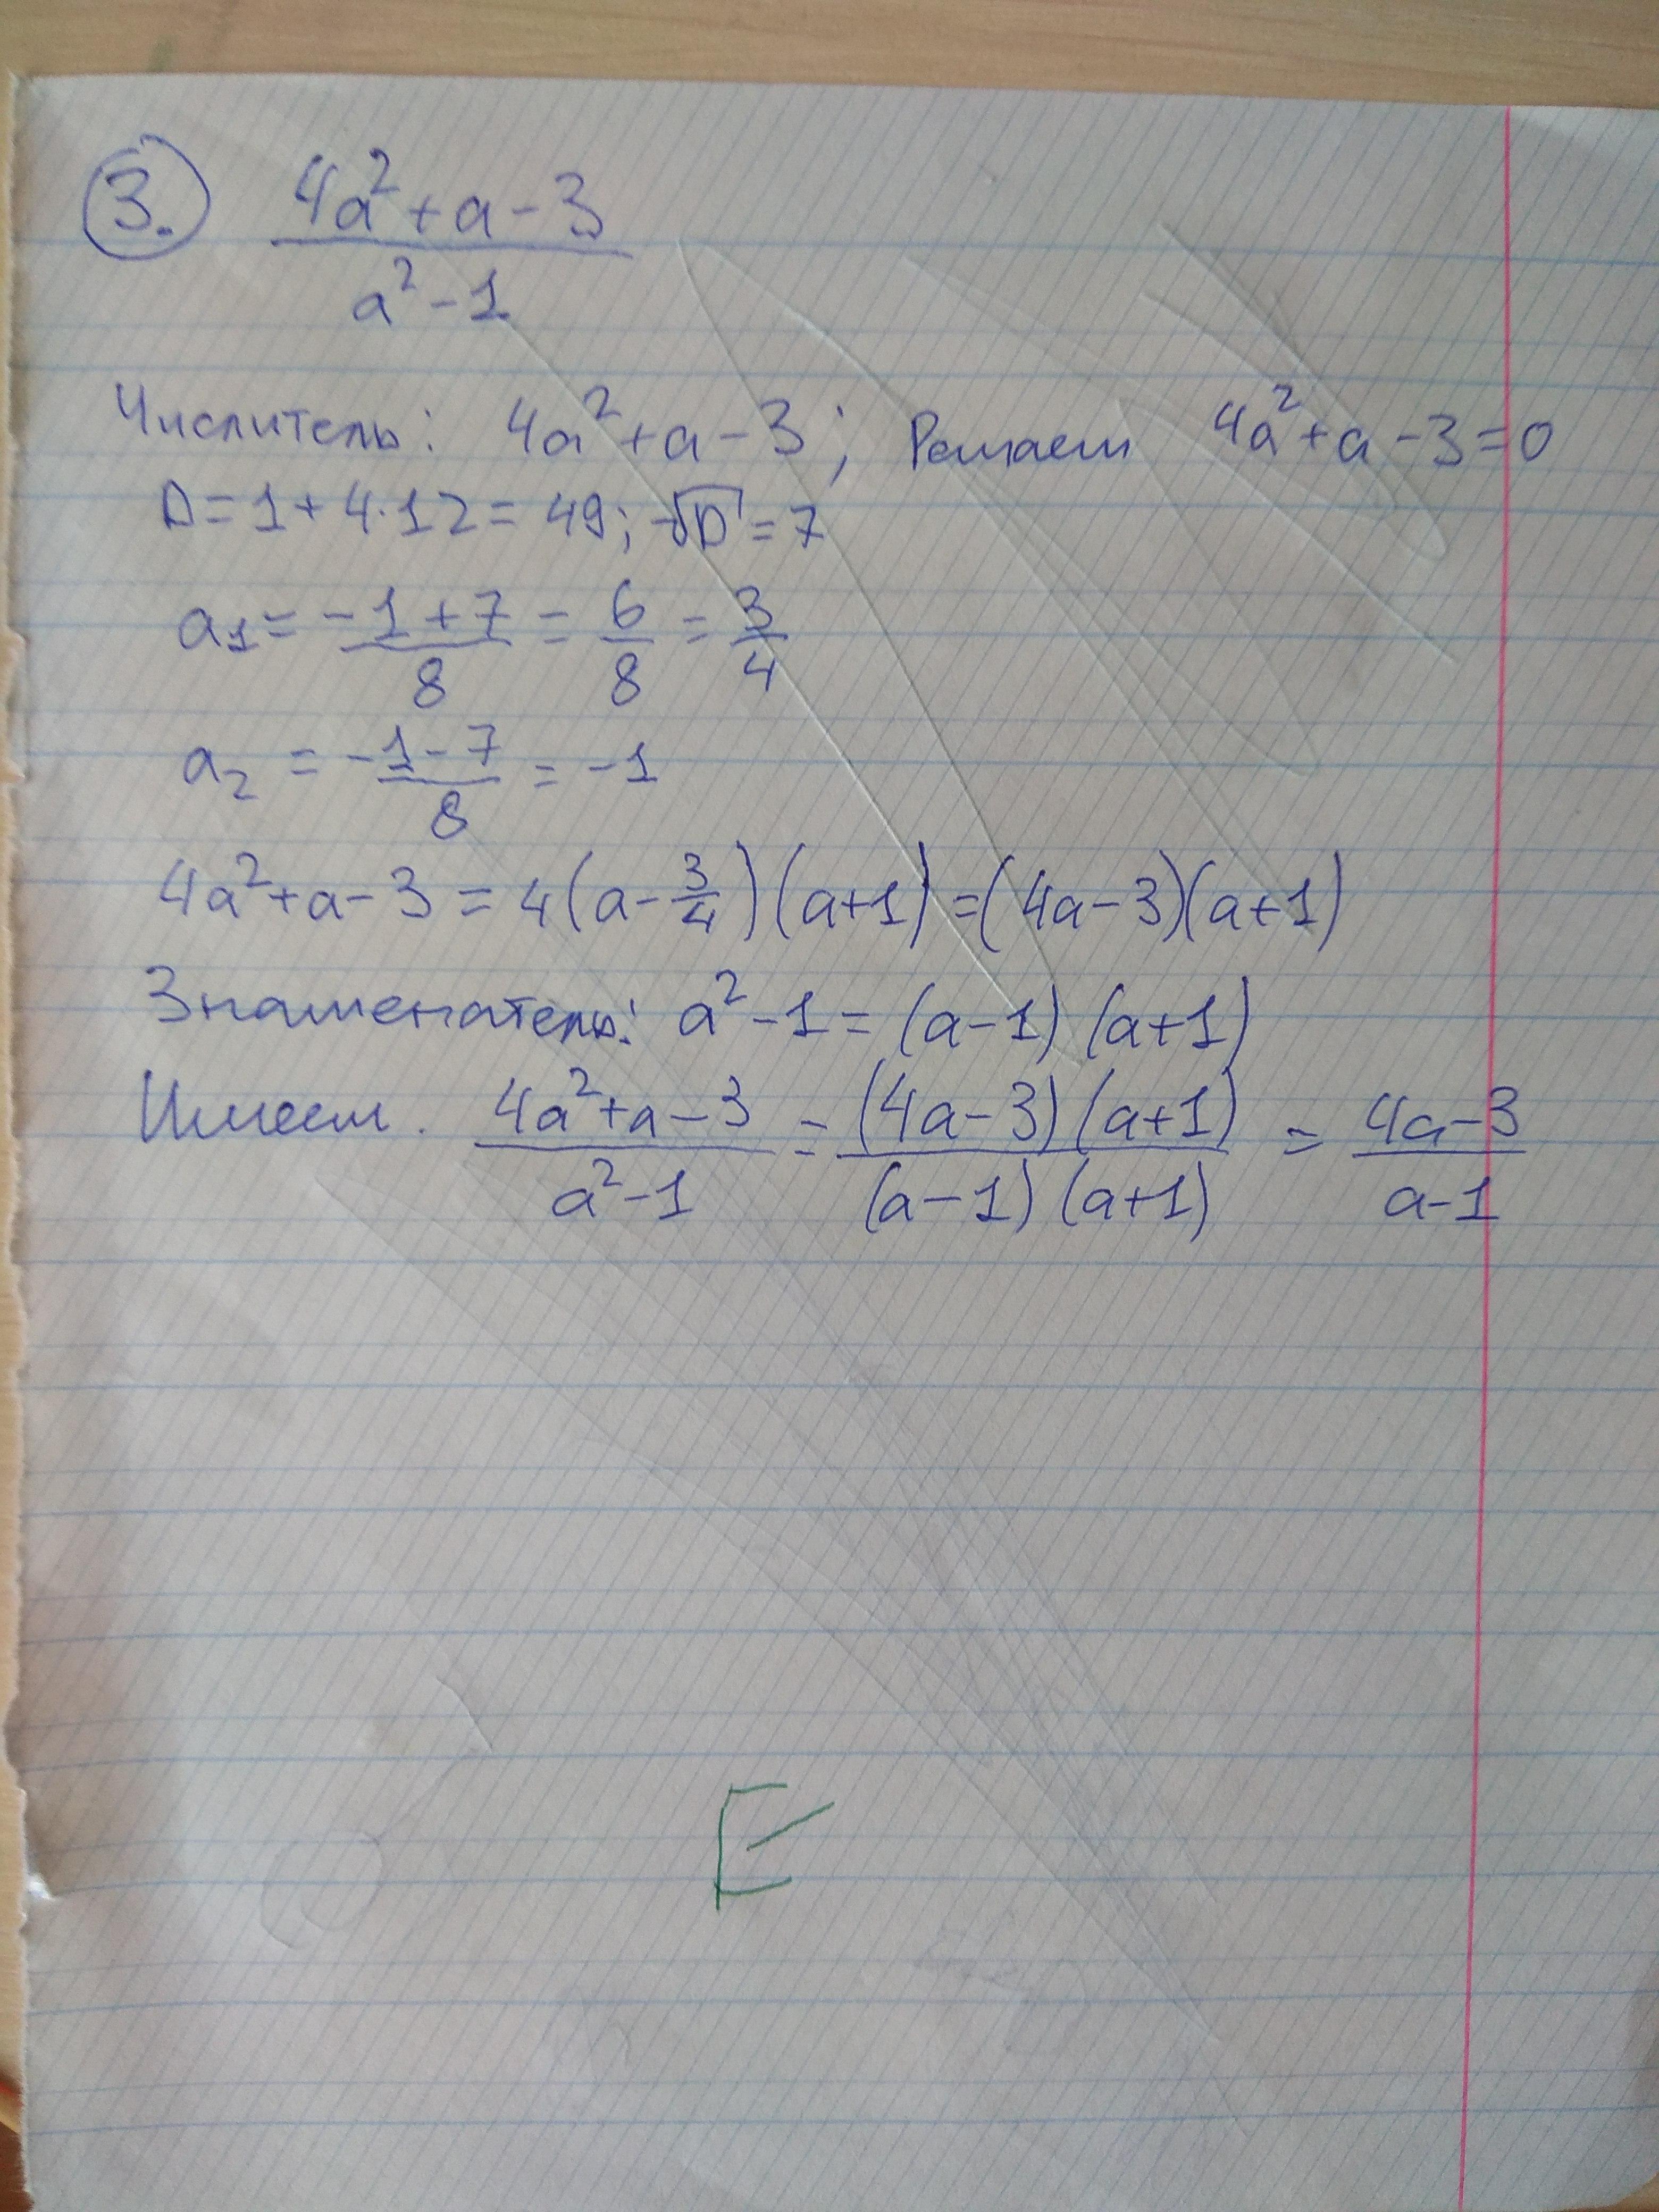 3. (4a²+a-3)/(a²-1)
Числитель: 4a²+a-3; Решаем 4a²+a-3=0
D=1+4·12=49; √D=7
a₁=(-1+7)/8=6/8=3/4
a₂=(-1-7)/8=-1
4a²+a-3=4(a-3/4)(a+1)=(4a-3)(a+1)
Знаменатель: a²-1=(a-1)(a+1)
Имеем. (4a²+a-3)/(a²-1)=((4a-3)(a+1))/((a-1)(a+1))=(4a-3)/(a-1)
E